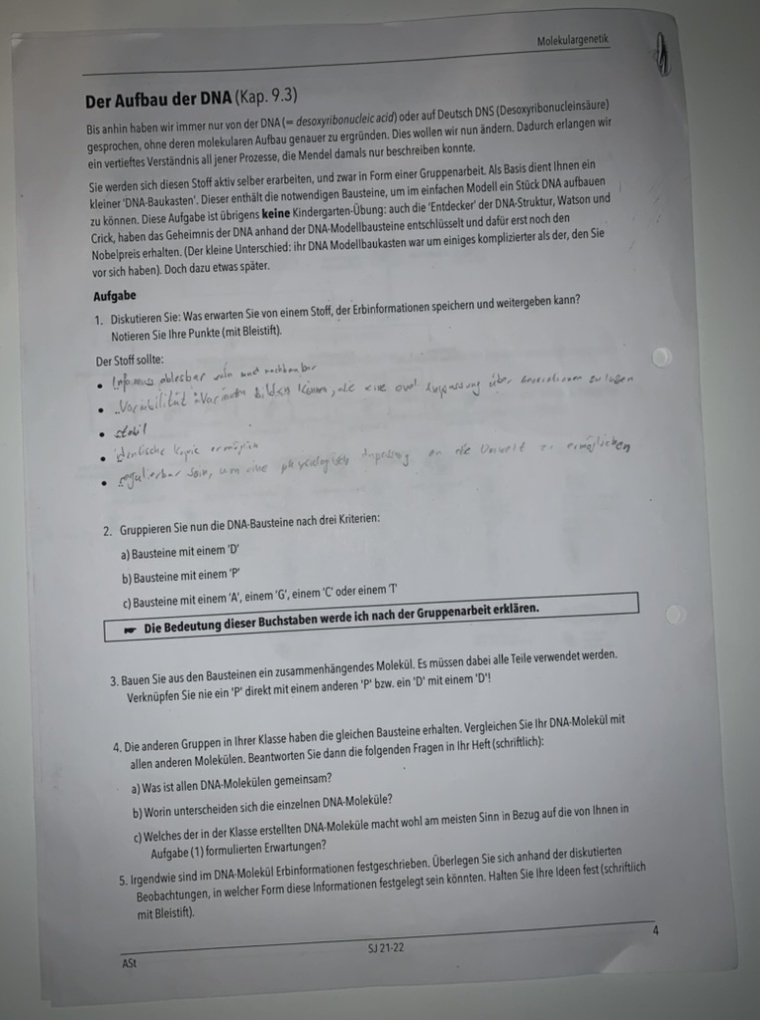 Molekulargenetik
Der Aufbau der DNA (Kap. 9.3)
Bis anhin haben wir immer nur von der DNA (= desoxyribonucleic acid) oder auf Deutsch DNS (Desoxyribonucleinsäure)
gesprochen, ohne deren molekularen Aufbau genauer zu ergründen. Dies wollen wir nun ändern. Dadurch erlangen wir
ein vertieftes Verständnis all jener Prozesse, die Mendel damals nur beschreiben konnte.
Sie werden sich diesen Stoff aktiv selber erarbeiten, und zwar in Form einer Gruppenarbeit. Als Basis dient Ihnen ein
kleiner 'DNA-Baukasten'. Dieser enthält die notwendigen Bausteine, um im einfachen Modell ein Stück DNA aufbauen
zu können. Diese Aufgabe ist übrigens keine Kindergarten-Übung: auch die 'Entdecker' der DNA-Struktur, Watson und
Crick, haben das Geheimnis der DNA anhand der DNA-Modellbausteine entschlüsselt und dafür erst noch den
Nobelpreis erhalten. (Der kleine Unterschied: ihr DNA Modellbaukasten war um einiges komplizierter als der, den Sie
vor sich haben). Doch dazu etwas später.
Aufgabe
1. Diskutieren Sie: Was erwarten Sie von einem Stoff, der Erbinformationen speichern und weitergeben kann?
Notieren Sie Ihre Punkte (mit Bleistift).
Der Stoff sollte:
• ablesbar sein und nachbaubar
• Variabilität: Varianten bilden können, eine Anpassung über Generationen zu
• stabil
• identische Kopie
• regulierbar sein, um eine physiologische Anpassung an die Umwelt zu ermöglichen
2. Gruppieren Sie nun die DNA-Bausteine nach drei Kriterien:
a) Bausteine mit einem 'D'
b) Bausteine mit einem 'P'
c) Bausteine mit einem 'A', einem 'G', einem 'C' oder einem 'T'
☛ Die Bedeutung dieser Buchstaben werde ich nach der Gruppenarbeit erklären.
3. Bauen Sie aus den Bausteinen ein zusammenhängendes Molekül. Es müssen dabei alle Teile verwendet werden.
Verknüpfen Sie nie ein 'P' direkt mit einem anderen 'P' bzw. ein 'D' mit einem 'D'!
4. Die anderen Gruppen in Ihrer Klasse haben die gleichen Bausteine erhalten. Vergleichen Sie Ihr DNA-Molekül mit
allen anderen Molekülen. Beantworten Sie dann die folgenden Fragen in Ihr Heft (schriftlich):
a) Was ist allen DNA-Molekülen gemeinsam?
b) Worin unterscheiden sich die einzelnen DNA-Moleküle?
c) Welches der in der Klasse erstellten DNA-Moleküle macht wohl am meisten Sinn in Bezug auf die von Ihnen in
Aufgabe (1) formulierten Erwartungen?
5. Irgendwie sind im DNA-Molekül Erbinformationen festgeschrieben. Überlegen Sie sich anhand der diskutierten
Beobachtungen, in welcher Form diese Informationen festgelegt sein könnten. Halten Sie Ihre Ideen fest (schriftlich
mit Bleistift).
ASt
SJ 21-22
4